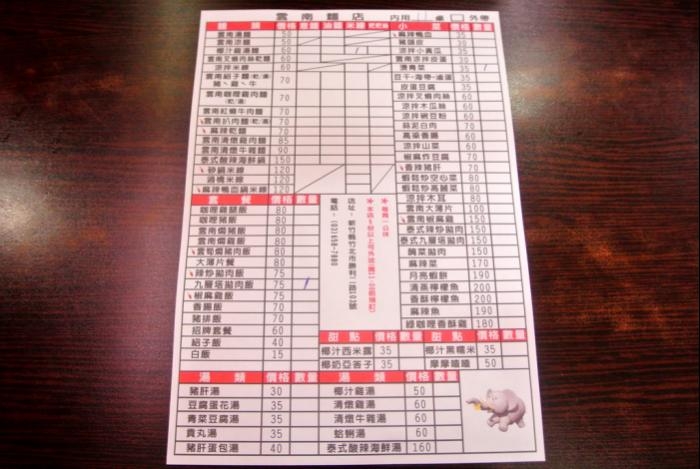 雲南麵店 內用 桌 外帶
麵 類 價格 意麵 油麵 米線 粄粄條
雲南湯麵 50
雲南涼麵 50
椰汁雞湯麵 60
雲南叉燒肉絲乾麵 60
涼拌米線 60
雲南紹子麵(乾/湯) 豬、雞、牛 70
雲南咖哩雞肉麵 (乾/湯) 70
雲南紅燒牛肉麵 70
雲南扒肉麵(乾/湯) 70
麻辣乾麵 70
雲南清燉雞肉麵 85
雲南清燉牛雜麵 90
泰式酸辣海鮮鍋 150
砂鍋米線 120
過橋米線 120
麻辣鴨血鍋米線 120
小 菜 價格 數量
麻辣鴨血 35
豬頭皮 30
涼拌小黃瓜 35
雲南涼拌皮蛋 30
燙青菜 35
豆干‧海帶‧滷蛋 35
皮蛋豆腐 35
涼拌叉燒肉絲 60
涼拌木瓜絲 60
涼拌碗豆粉 60
蒜泥白肉 70
高粱香腸 60
涼拌山菜 60
椒麻炸豆腐 70
香辣豬肝 70
蝦鬆炒空心菜 80
蝦鬆炒高麗菜 80
涼拌木耳 80
雲南大薄片 100
雲南椒麻雞 150
泰式辣炒拋肉 150
泰式九層塔拋肉 150
醃菜拋肉 150
麻辣菜 170
月亮蝦餅 190
清蒸檸檬魚 200
香酥檸檬魚 200
麻辣魚 190
綠咖哩香酥雞 180
套 餐 價格 數量
咖哩雞腿飯 80
咖哩豬飯 80
雲南焗豬飯 80
雲南焗雞飯 80
雲筍焗拋肉飯 80
大薄片餐 80
辣炒拋肉飯 75
九層塔拋肉飯 75
椒麻雞飯 75
香腸飯 70
豬排飯 70
招牌套餐 60
紹子飯 40
白飯 15
店址‧新竹縣竹北市勝利二路103號
電話‧(03)658-7080
甜 點 價格 數量 甜 點 價格 數量
椰汁西米露 35 椰汁黑糯米 35
椰奶亞答子 35 摩摩喳喳 50
湯 類 價格 數量 湯 類 價格 數量
豬肝湯 30 椰汁雞湯 50
豆腐蛋花湯 35 清燉雞湯 60
青菜豆腐湯 35 清燉牛雜湯 60
貢丸湯 35 蛤蜊湯 60
豬肝蛋包湯 40 泰式酸辣海鮮湯 160